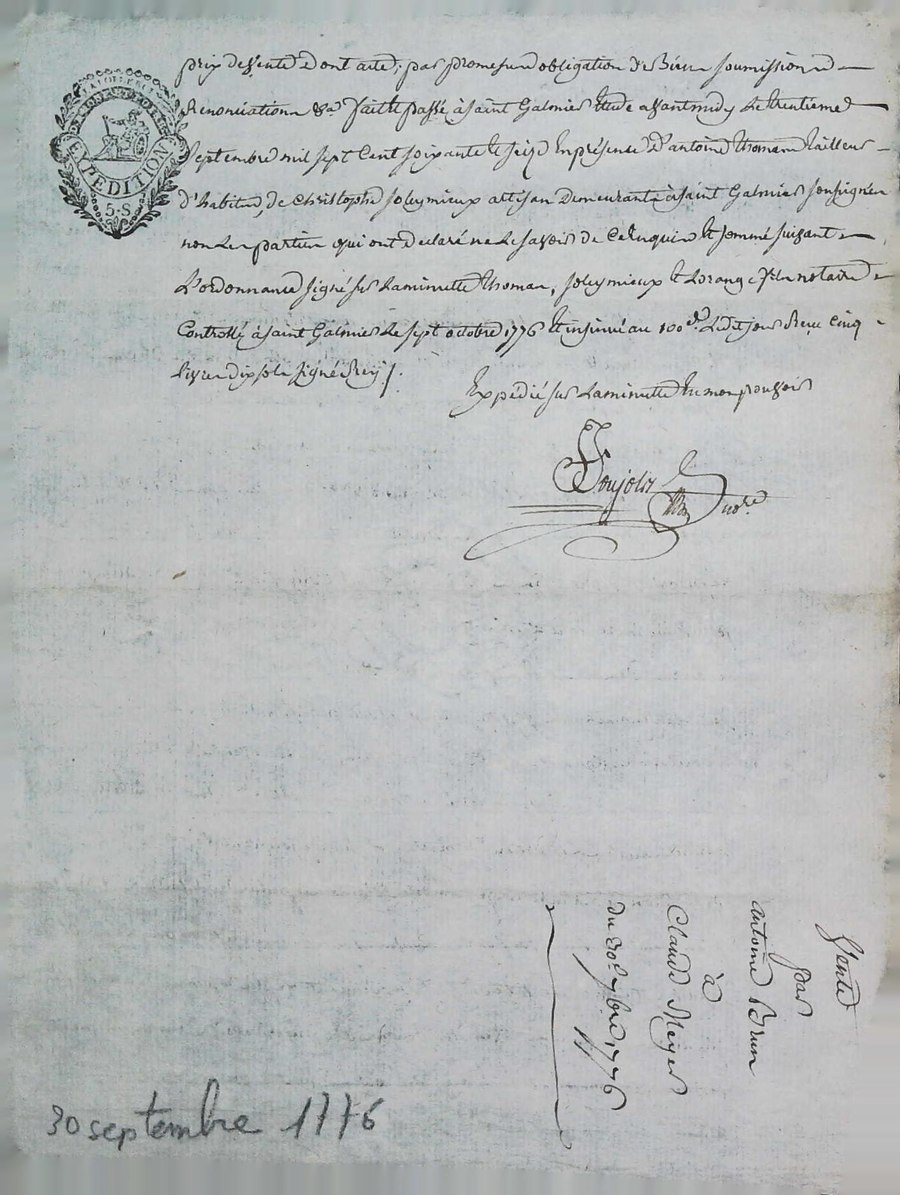 prix de vente dont acte, par promesse obligation de Biens soumissions
Renonciations &a. fait et passé à saint Galmier Etude avant midy Le trentieme
septembre mil sept Cent soixante et seize En présence d'antoine thomas tailleur
d'habits, de Christophe soleymieux artisan Demeurants à saint Galmier soussignés
non Les parties qui ont déclaré ne Le savoir de Ce Enquis et sommé suivant
L'ordonnance signé sur La minutte thomas, soleymieux et notaire
Controllé à saint Galmier Le sept octobre 1776 et insinué au 100e. Ledit jour Reçu Cinq
Livres dix sols signé
Expédié sur La minutte En mon pouvoir
EXPEDITION
5.S
Vente
par
antoine Brun
à
Claude
du 30e. 7bre. 1776
30 septembre 1776